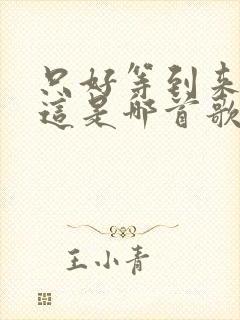 只好等到来
這是哪首歌
王小青